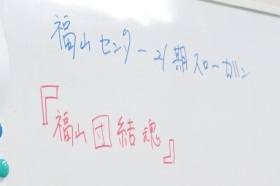 福山センター21期スローガン
『福山団結魂』